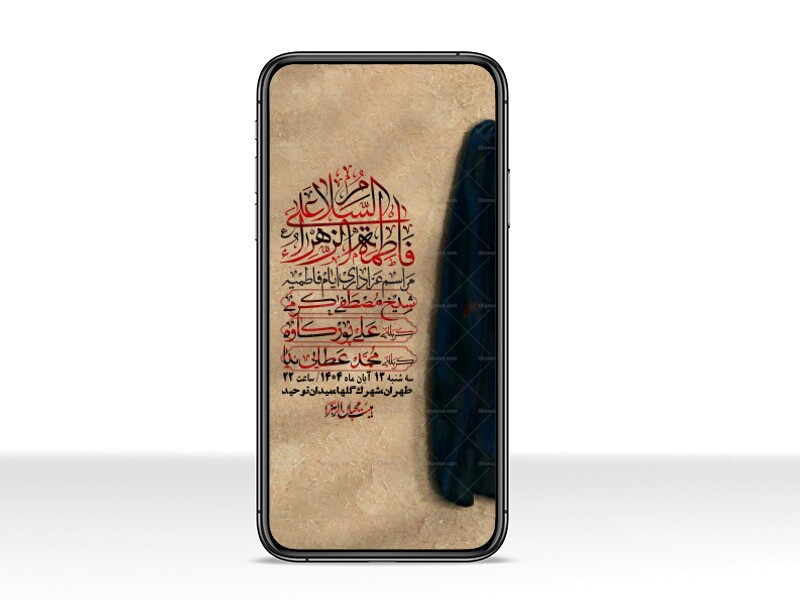 السلام علی
فاطمة الزهراء
مراسم عزاداری ایام فاطمیه
شیخ مصطفی کرمی
کربلائی علی پور کاوه
کربلائی محمد عطایی نیا
سه شنبه ۱۳ آبان ماه ۱۴۰۴ / ساعت ۲۲
طهران،شهرک گلها،میدان توحید
هیئت محبان الزهرا